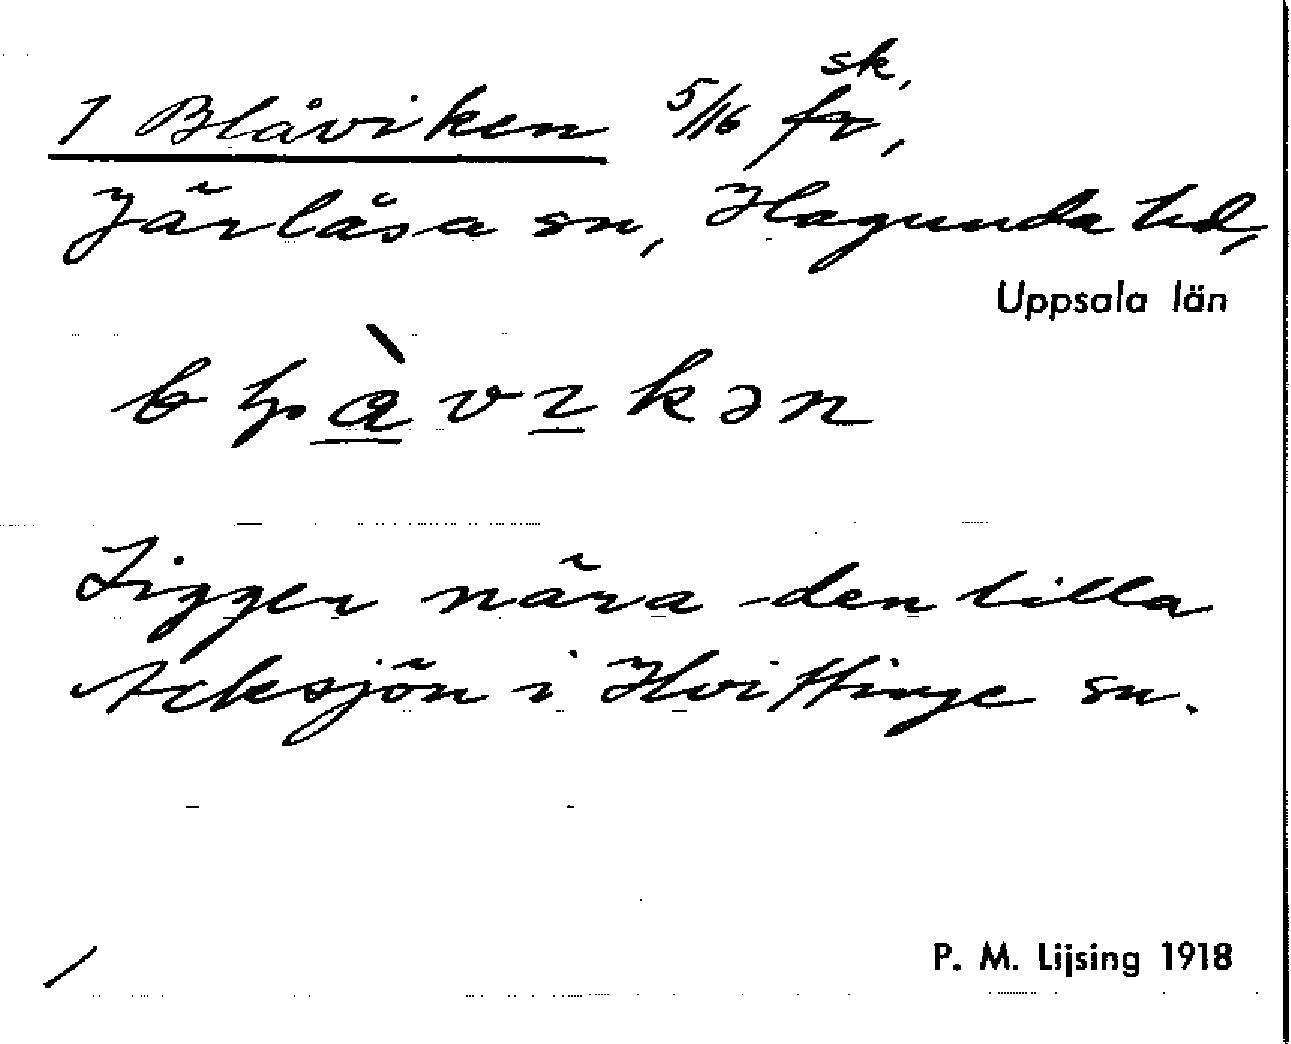 sk.
1 Blåviken 5/16 fr,
Järlåsa sn, Hagunda hd,
Uppsala län
Ligger nära den lilla
Acksjön i Hvittinge sn.
P. M. Lijsing 1918